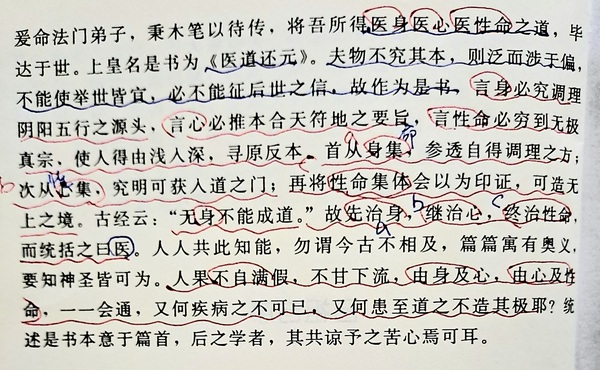 爰命法门弟子，秉木笔以待传，将吾所得医身医心医性命之道，毕
达于世。上皇名是书为《医道还元》。夫物不究其本，则泛而涉于偏，
不能使举世皆宜，必不能征后世之信，故作为是书，言身必究调理
阴阳五行之源头，言心必推本合天符地之要旨，言性命必穷到无极
真宗，使人得由浅入深，寻原反本。首从身集，参透自得调理之方；
次从心集，究明可获入道之门；再将性命集体会以为印证，可造无
上之境。古经云：“无身不能成道。”故先治身，继治心，终治性命，
而统括之曰医。人人共此知能，勿谓今古不相及，篇篇寓有奥义，
要知神圣皆可为。人果不自满假，不甘下流，由身及心，由心及性
命，一一会通，又何疾病之不可已，又何患至道之不造其极耶？统
述是书本意于篇首，后之学者，其共谅予之苦心焉可耳。
a
b
c